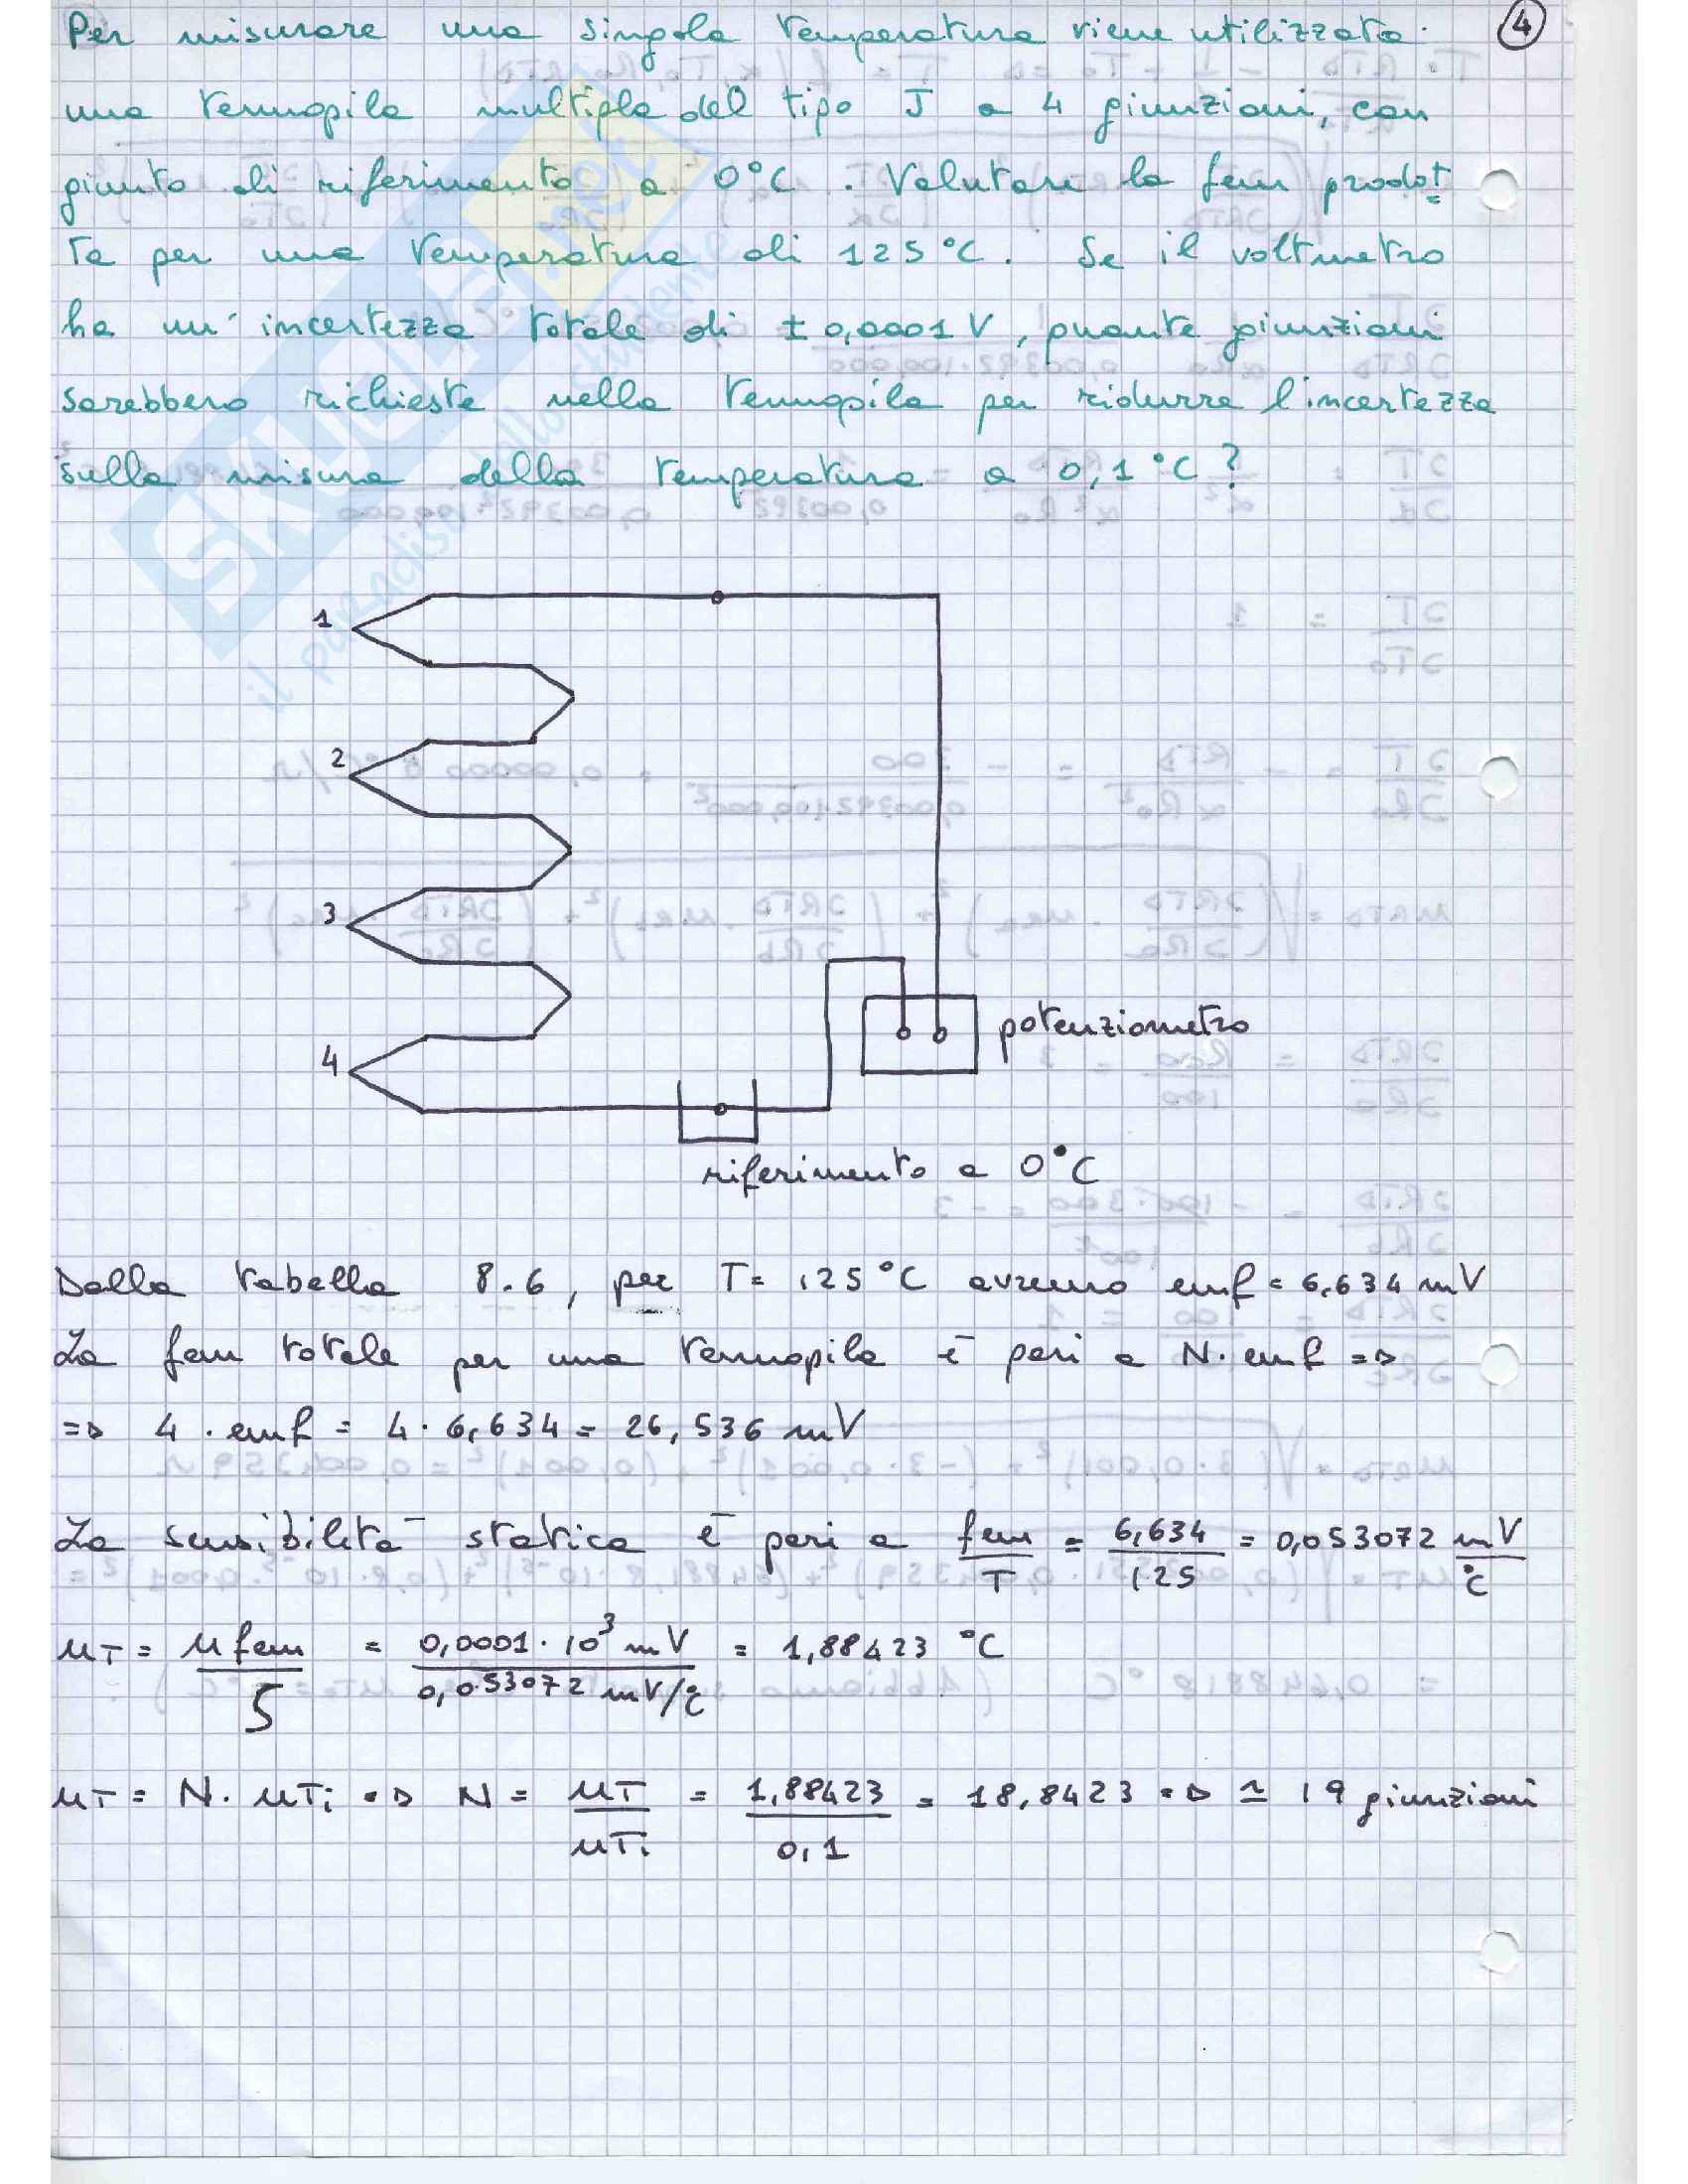 Per misurare una singola temperatura viene utilizzata 4
una termopila multipla del tipo J a 4 giunzioni, con
giunto di riferimento a 0°C. Valutare la fem prodot=
ta per una temperatura di 125°C. Se il voltmetro
ha un' incertezza totale di ± 0,0001 V, quante giunzioni
sarebbero richieste nella termopila per ridurre l'incertezza
sulla misura della temperatura a 0,1 °C?
SKUOLA.net
il paradiso dello studente
1
2
3
4
potenziometro
riferimento a 0°C
Dalla tabella 8.6, per T= 125°C avremo emf = 6,634 mV
La fem totale per una termopila è pari a N. emf =>
=> 4 . emf = 4 . 6,634 = 26,536 mV
La sensibilità statica è pari a fem/T = 6,634/125 = 0,053072 mV/°C
μT = μfem/S = 0,0001 . 10³ mV / 0,053072 mV/°C = 1,88423 °C
μT = N. μTi => N = μT/μTi = 1,88423/0,1 = 18,8423 => ≃ 19 giunzioni